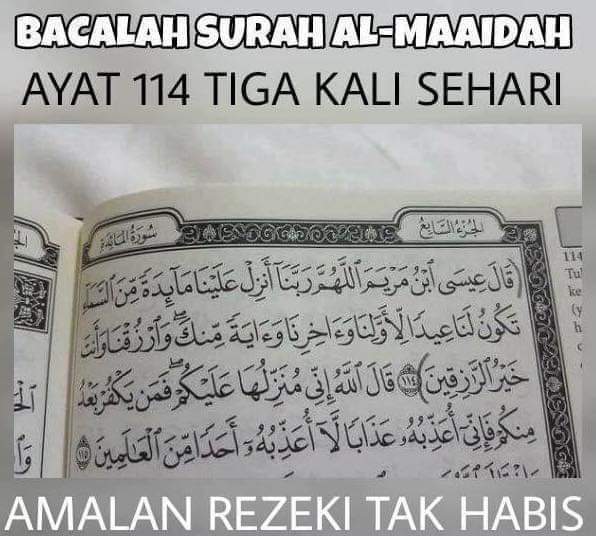 BACALAH SURAH AL-MAAIDAH
AYAT 114 TIGA KALI SEHARI
سُورَةُ المَائِدَةِ
الجُزْءُ السَّابِعُ
قَالَ عِيسَى ٱبْنُ مَرْيَمَ ٱللَّهُمَّ رَبَّنَآ أَنزِلْ عَلَيْنَا مَآئِدَةً مِّنَ ٱلسَّمَآءِ
تَكُونُ لَنَا عِيدًا لِّأَوَّلِنَا وَءَاخِرِنَا وَءَايَةً مِّنكَ ۖ وَٱرْزُقْنَا وَأَنتَ
خَيْرُ ٱلرَّٰزِقِينَ ١١٤ قَالَ ٱللَّهُ إِنِّى مُنَزِّلُهَا عَلَيْكُمْ ۖ فَمَن يَكْفُرْ بَعْدُ
مِنكُمْ فَإِنِّىٓ أُعَذِّبُهُۥ عَذَابًا لَّآ أُعَذِّبُهُۥٓ أَحَدًا مِّنَ ٱلْعَٰلَمِينَ ١١٥
114
AMALAN REZEKI TAK HABIS